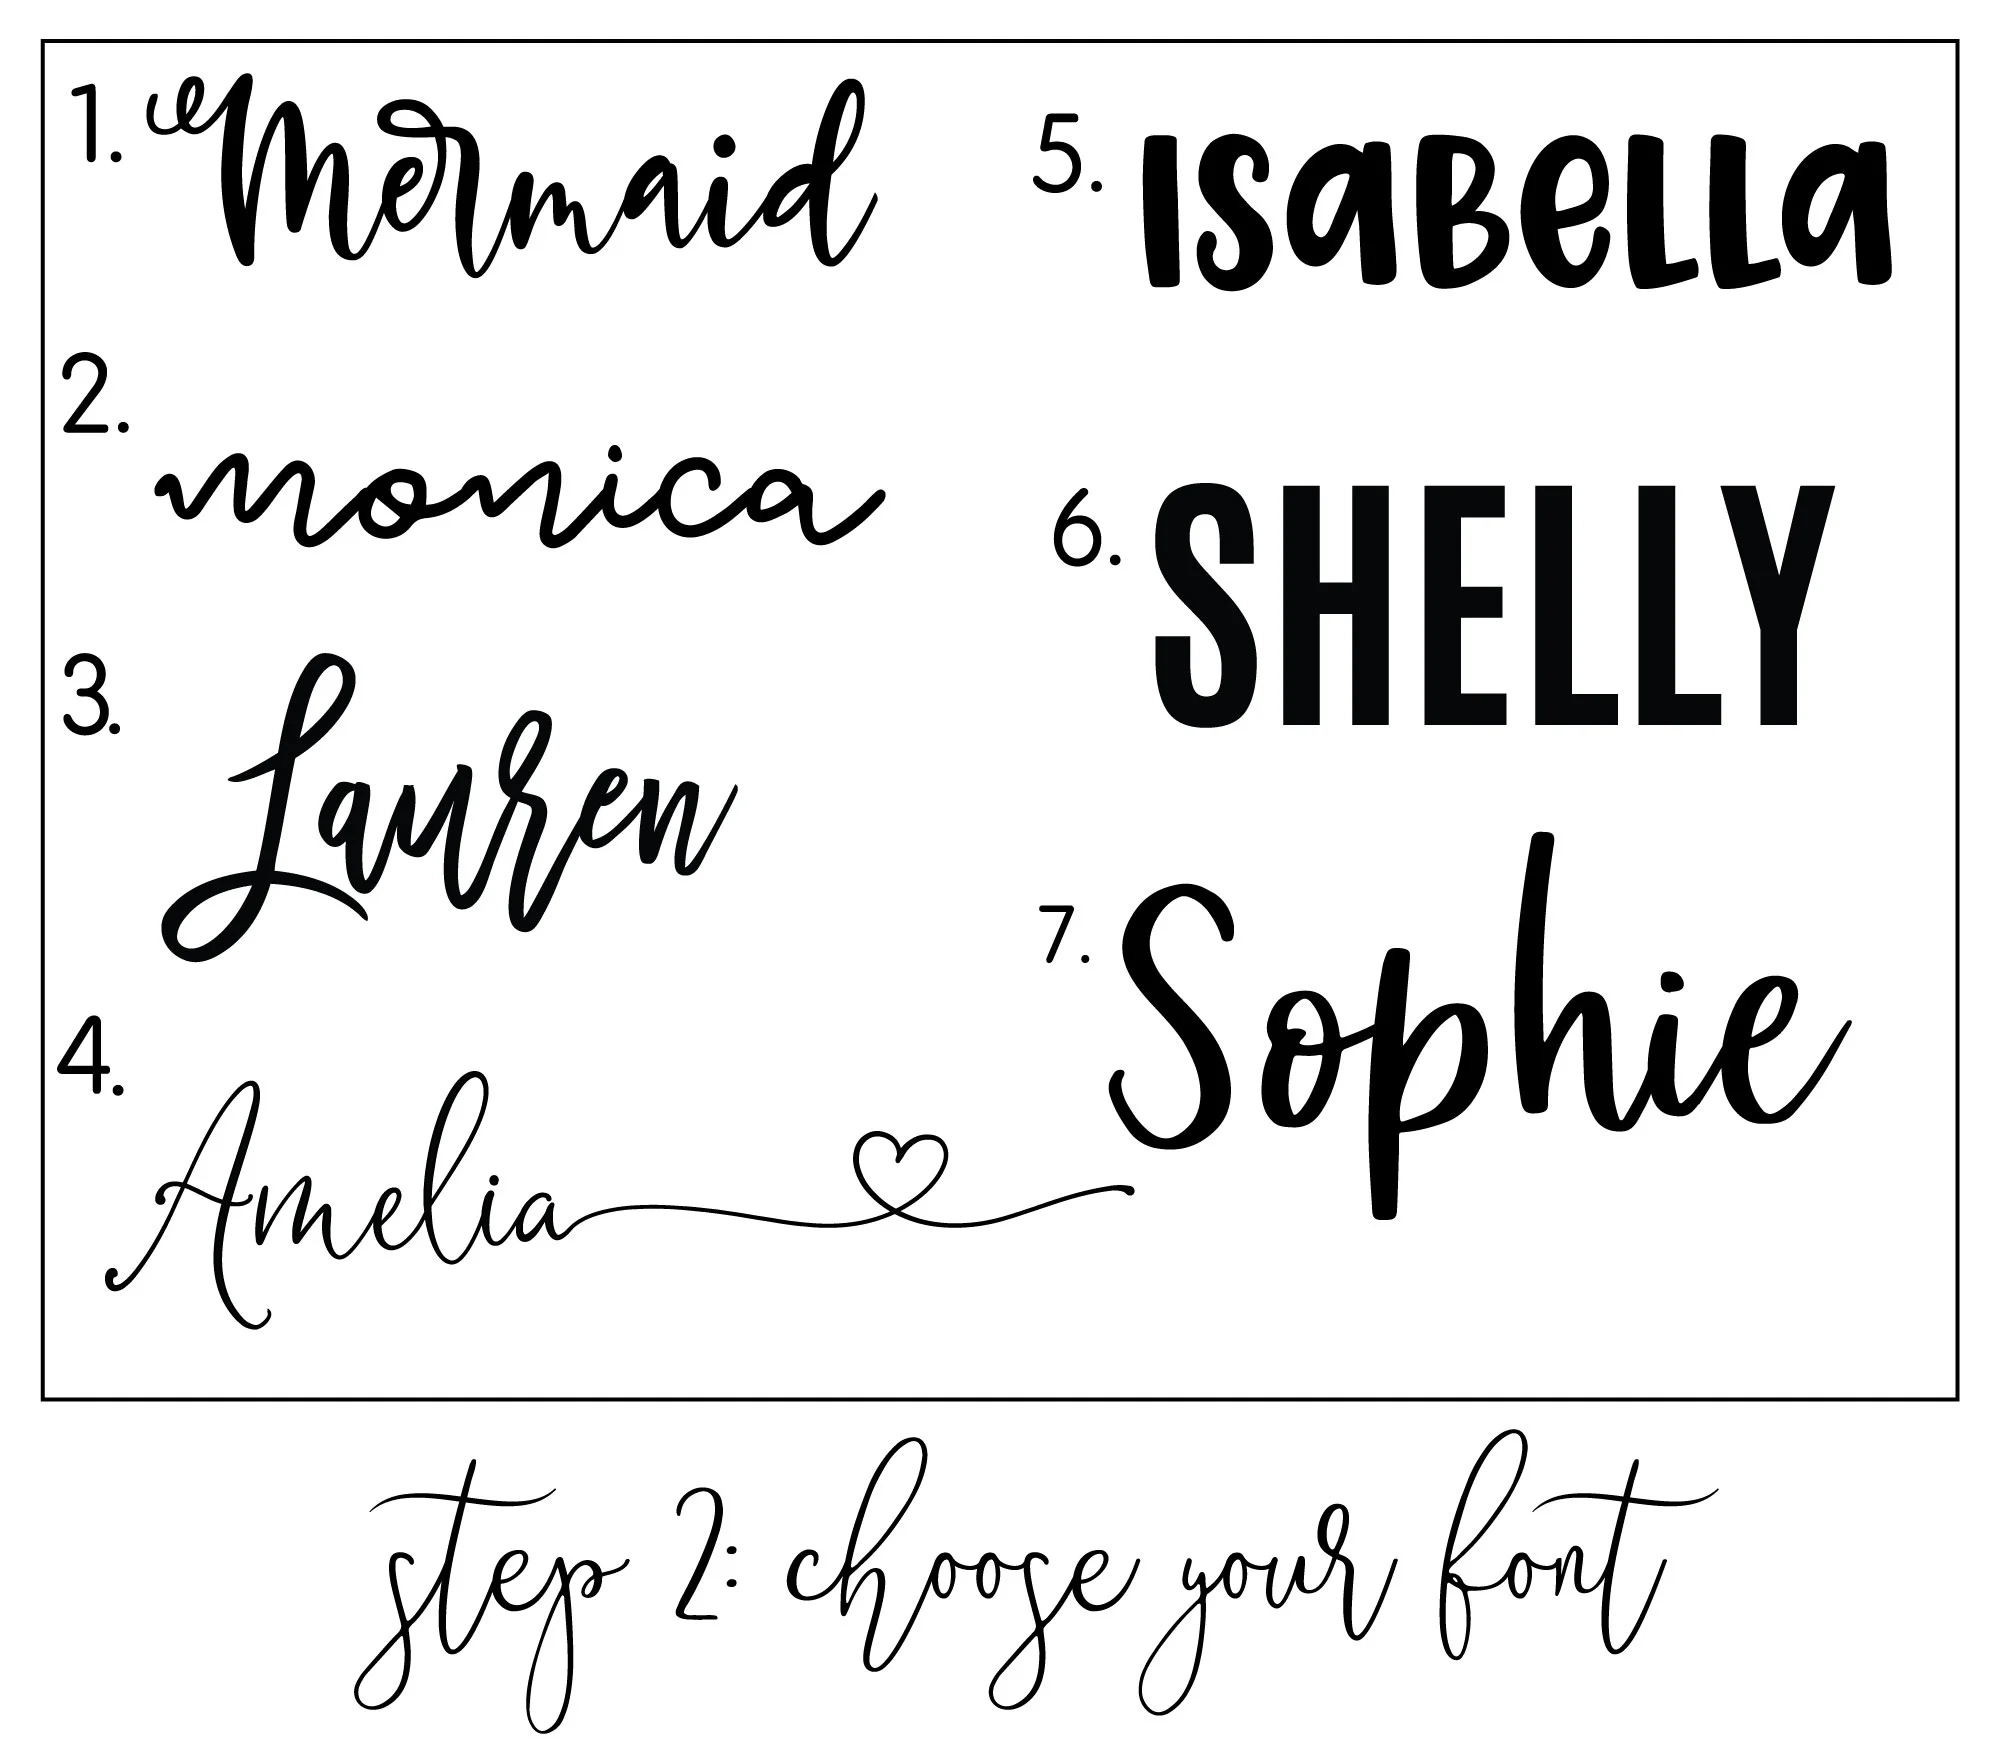 1. Mermaid
2. monica
3. Lauren
4. Amelia
5. ISaBeLLa
6. SHELLY
7. Sophie
step 2: choose your font